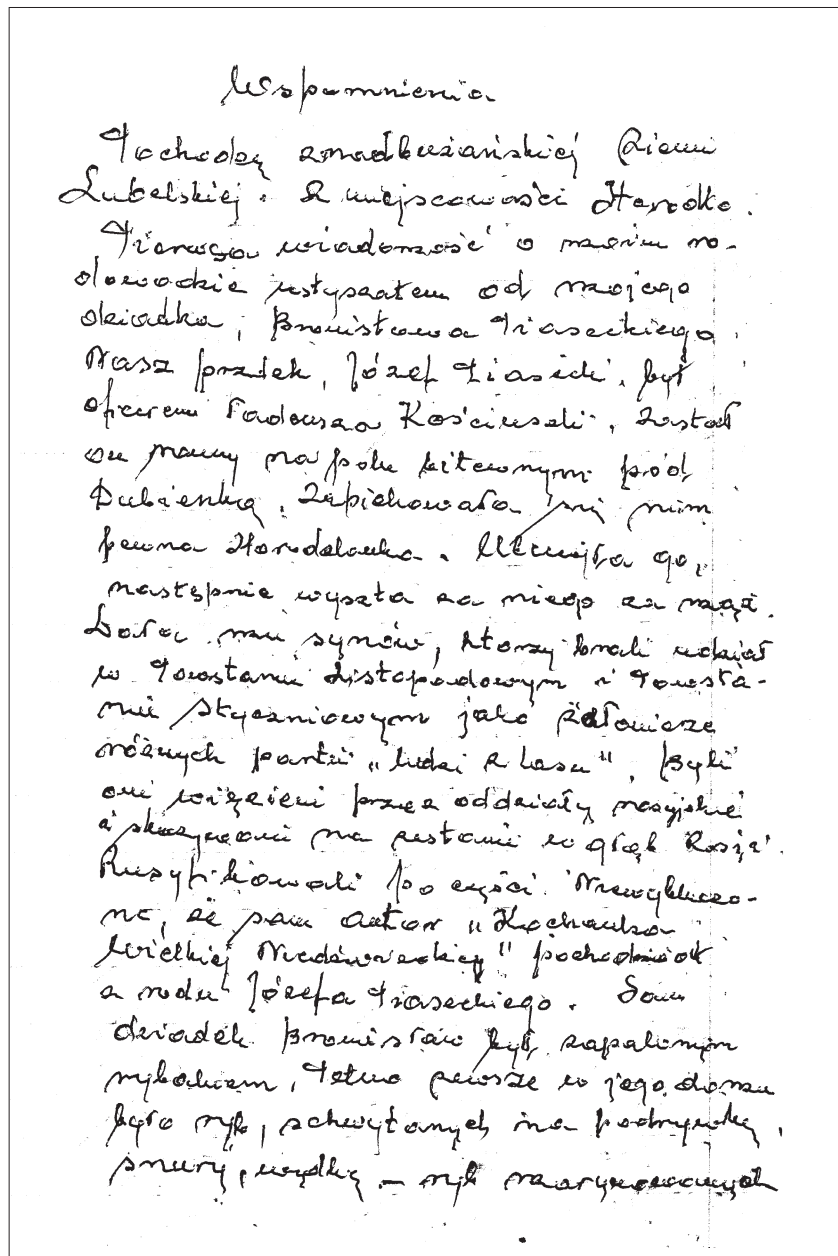 Wspomnienia
Pochodzę z nadbużańskiej Ziemi
Lubelskiej. Z miejscowości Horodło.
Pierwszą wiadomość o moim ro-
dowodzie usłyszałem od mojego
dziadka, Bronisława Piaseckiego.
Nasz przodek, Józef Piasecki, był
oficerem Tadeusza Kościuszki. Został
on ranny na polu bitewnym pod
Dubienką. Zaopiekowała się nim
pewna Horodelanka. Ukryła go,
następnie wyszła za niego za mąż.
Dała mu synów, którzy brali udział
w Powstaniu Listopadowym i Powsta-
niu Styczniowym jako żołnierze
różnych partii „ludzi z lasu”. Byli
oni więzieni przez oddziały rosyjskie
i skazywani na zesłanie w głąb Rosji.
Rusyfikowali po części. Niewykluczo-
ne, że sam autor „Kochanka
Wielkiej Niedźwiedzicy” pochodził
z rodu Józefa Piaseckiego. Sam
dziadek Bronisław był zapalonym
rybakiem. Pełno zawsze w jego domu
było ryb, schwytanych na podrywkę,
sznury, wędkę – ryb marynowanych